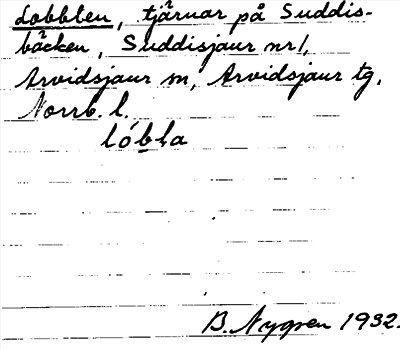 Lobblen, tjärnar på Suddis-
bäcken, Suddisjaur nr 1,
Arvidsjaur sn, Arvidsjaur tg,
Norrb. l.
lóbla
B. Nygren 1932.